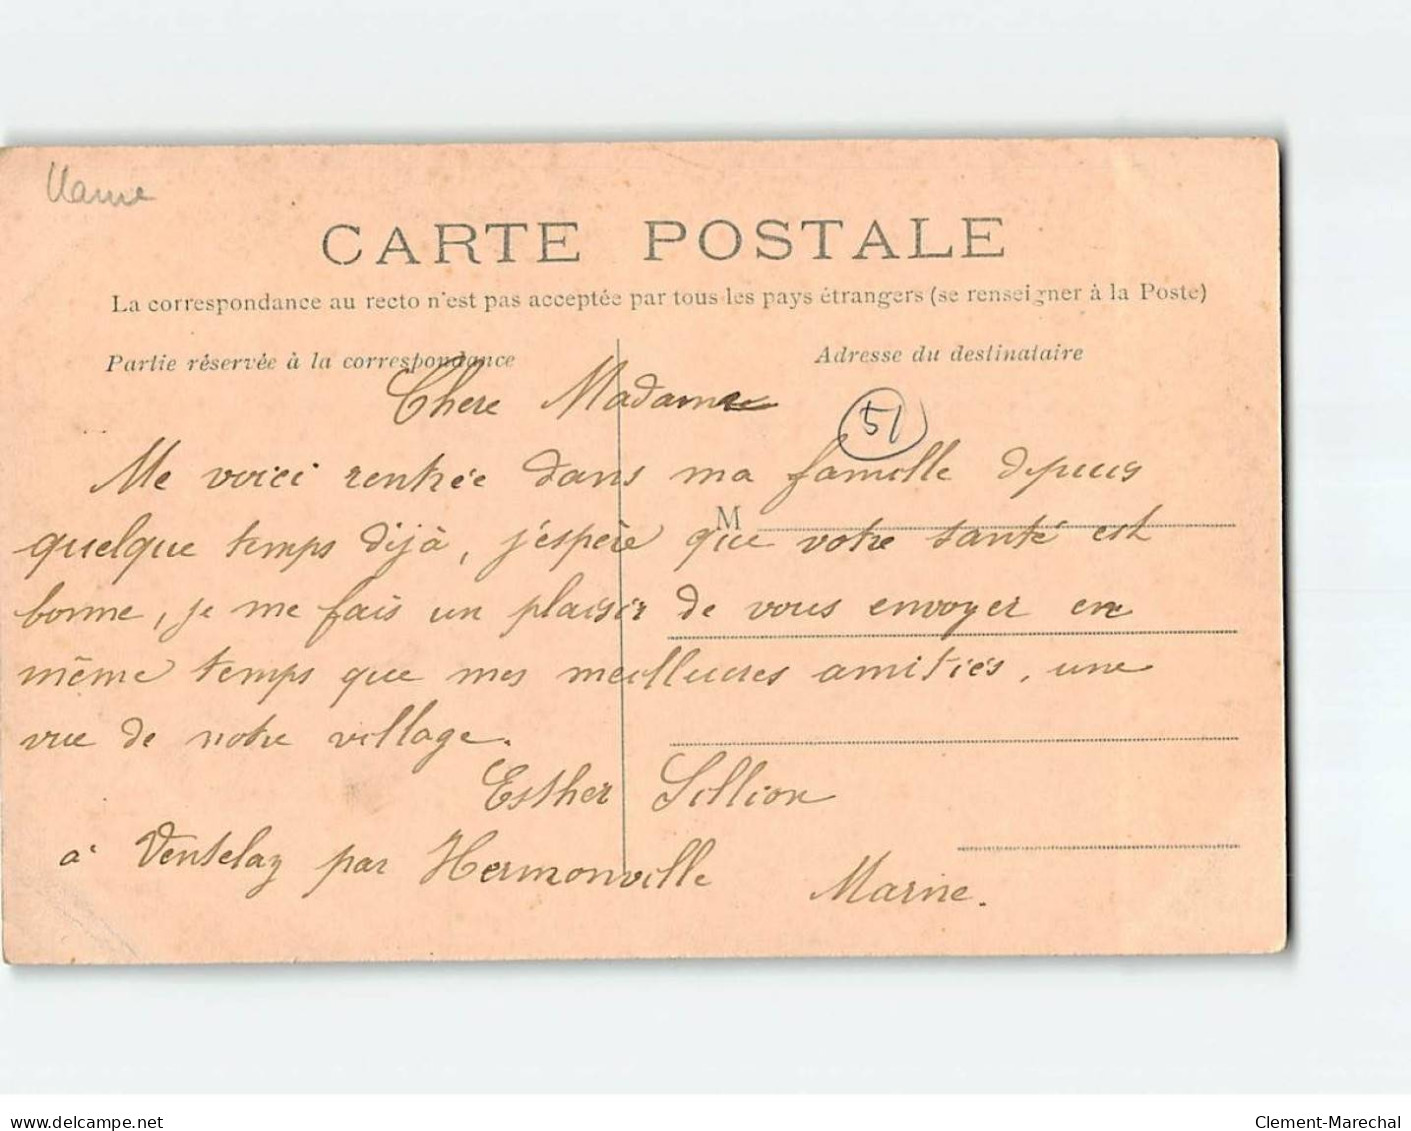 Marne
CARTE POSTALE
La correspondance au recto n'est pas acceptée par tous les pays étrangers (se renseigner à la Poste)
Partie réservée à la correspondance
Adresse du destinataire
Chere Madame
51
Me voici rentrée dans ma famille depuis
M
quelque temps déjà, j'espère que votre santé est
bonne, je me fais un plaisir de vous envoyer en
même temps que mes meilleures amitiés, une
vue de notre village.
Esther Sillion
à Ventelay par Hermonville Marne.
www.delcampe.net
Clement-Marechal